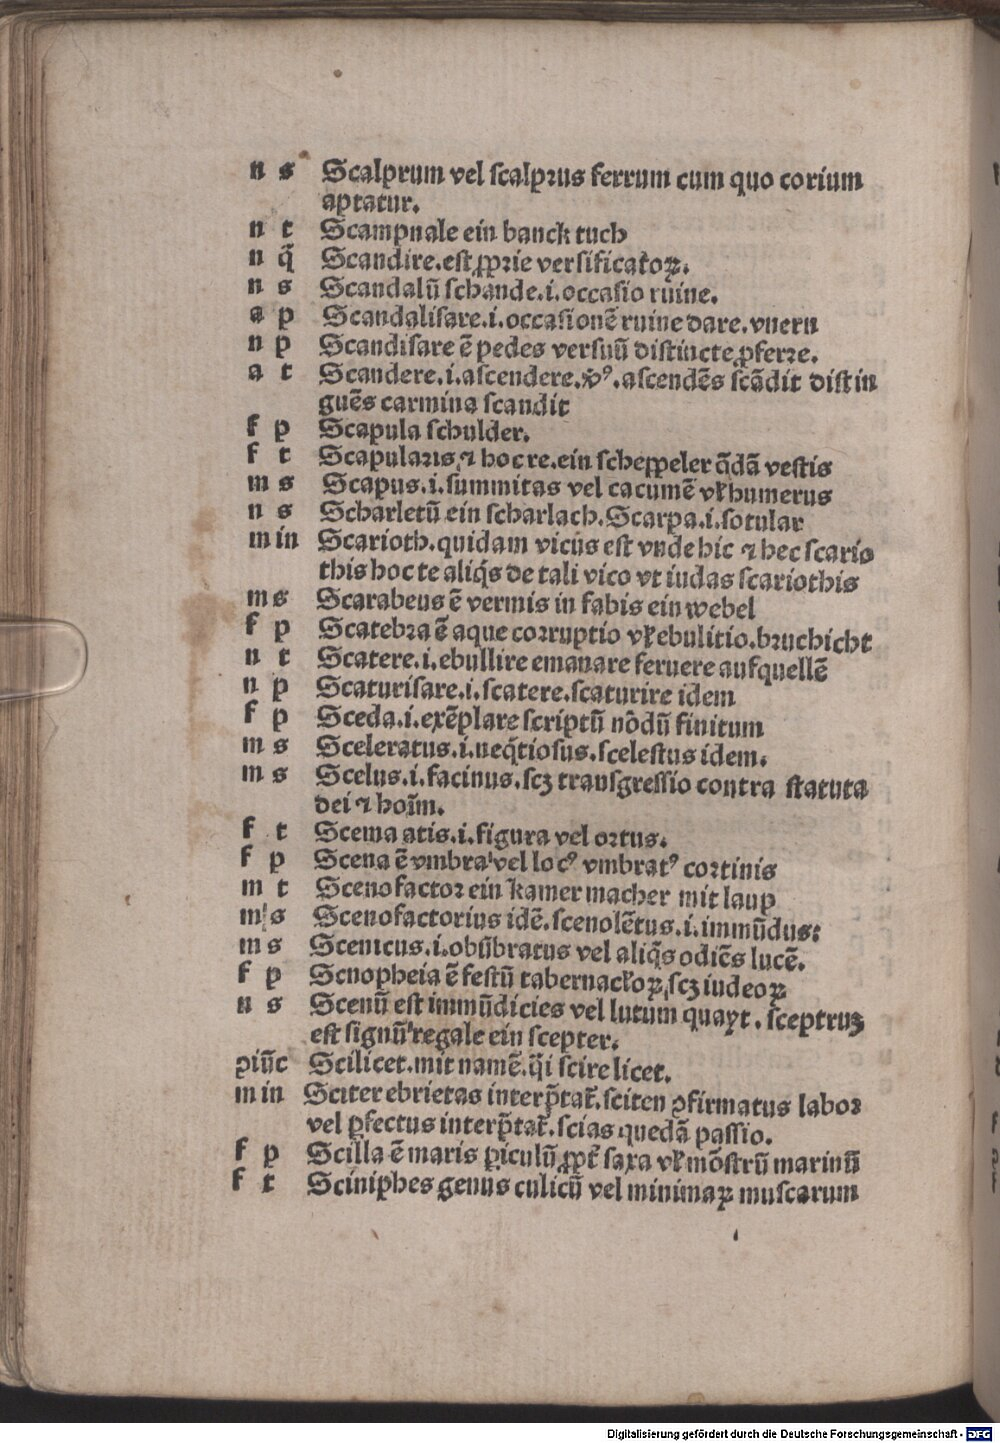 n s Scalprum vel scalprus ferrum cum quo corium
aptatur.
n t Scampnale ein banck tuch
n q̃ Scandire.est ꝓprie versificatoꝝ.
n s Scandalū schande.i.occasio ruine.
a p Scandalisare.i.occasionē ruine dare.vnern
n p Scandisare ē pedes versuū distincte ꝓferre.
a t Scandere.i.ascendere.ꝟꝰ.ascendēs scādit distin
guēs carmina scandit
f p Scapula schulder.
f t Scapularis ⁊ hoc re.ein scheppeler q̄dā vestis
m s Scapus.i.summitas vel cacumē vꝉ humerus
n s Scharletū ein scharlach.Scarpa.i.sotular
m in Scarioth.quidam vicus est vnde hic ⁊ hec scario
this hoc te aliq̄s de tali vico vt iudas scariothis
m s Scarabeus ē vermis in fabis ein webel
f p Scatebra ē aque corruptio vꝉ ebulitio.bruchicht
n t Scatere.i.ebullire emanare feruere aufquellē
n p Scaturisare.i.scatere.scaturire idem
f p Sceda.i.exēplare scriptū nōdū finitum
m s Sceleratus.i.neq̄tiosus.scelestus idem.
m s Scelus.i.facinus.scꝫ transgressio contra statuta
dei ⁊ hoīm.
f t Scema atis.i.figura vel ortus.
f p Scena ē vmbra vel locꝰ vmbratꝰ cortinis
m t Scenofactor ein kamer macher mit laup
m s Scenofactorius idē.scenolētus.i.immūdus:
m s Scenicus.i.obūbratus vel aliq̄s odiēs lucē.
f p Scnopheia ē festū tabernackoꝝ scꝫ iudeoꝝ
n s Scenū est immūdicies vel lutum quayt. sceptruꝫ
est signū regale ein scepter.
ꝓiūc Scilicet.mit namē.q̄i scire licet.
m in Sciter ebrietas interp̄tat̄.sciten ꝯfirmatus labor
vel ꝑfectus interp̄tat̄.scias quedā passio.
f p Scilla ē maris ꝑiculū ꝓpt̄ saxa vꝉ mōstrū marinū
f t Sciniphes genus culicū vel minimaꝝ muscarum
Digitalisierung gefördert durch die Deutsche Forschungsgemeinschaft - DFG